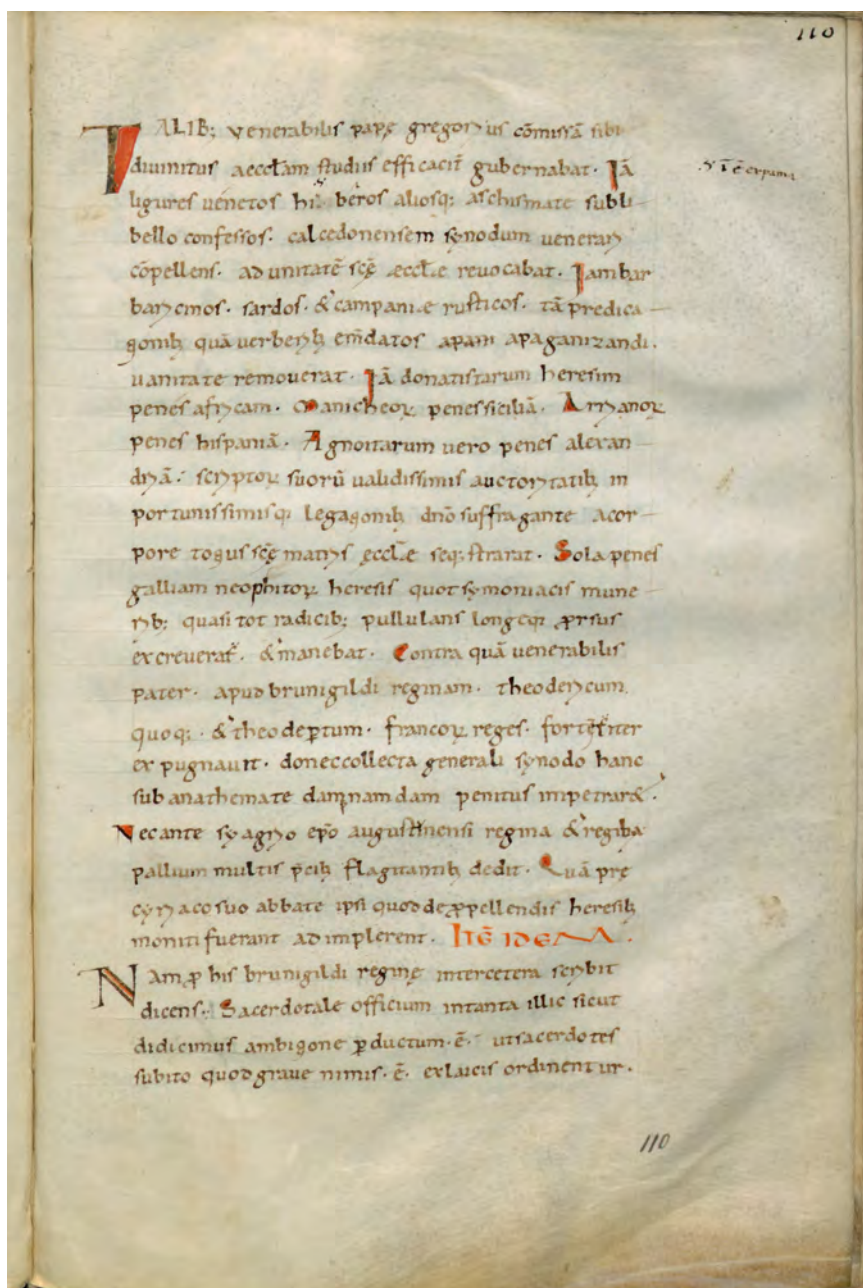 110
TALIB; venerabilis papę gregorius cōmissā sibi
diuinitus aeccłam studiis efficacit̄ gubernabat. Iā
ligures uenetos hil beros aliosq; aschismate subli
bello confessos. calcedonensem synodum uenerari
cōpellens. ad unitatē sc̄ę æccłe revocabat. Iambar
baricinos. sardos. & campanie rusticos. tā predica
tionib; quā uerberib; em̄datos apam apaganizandi.
uanitate remouerat. Iā donatistarum heresim
penes africam. Manicheoꝝ penessiciliā. Arrianoꝝ
penes hispaniā. Agnoitarum uero penes alexan
driā. scriptoꝝ suorū ualidissimis auctoritatib; in
portunissimisq; legationib; dn̄o suffragante acor
pore totius sc̄ę matris ęccłe seq;strarat. Sola penes
galliam neophitoꝝ heresis quot symoniacis mune
rib; quasi tot radicib; pullulans longeq; ꝓrsus
excreuerat. & manebat. Contra quā venerabilis
pater. apud brunigildi reginam. theodericum
quoq;. & theodeꝑtum. francoꝝ reges. fortit̄ter
expugnauit. doneccollecta generali synodo hanc
sub anathemate damnamdam penitus impetrar&.
Necante syagrio ep̄o augustinensi regina & regiba
pallium multis p̄cib; flagitantib; dedit. Quā pre
cyriaco suo abbate ipsi quodde ꝓpellendis heresib;
moniti fuerant adimplerent. ITĒ IDEM.
Nam ꝓ his brunigildi reginę intercetera scribit
dicens. Sacerdotale officium intanta illic sicut
didicimus ambitione ꝑductum.ē. utsacerdotes
subito quodgraue nimis.ē. exlaicis ordinentur.
110